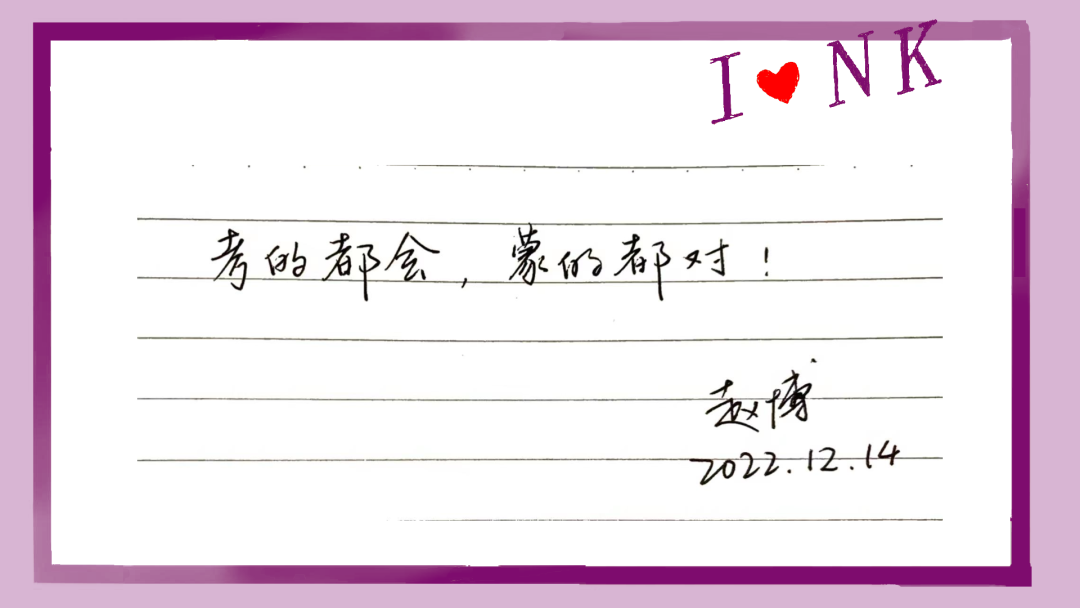 I ❤ NK
考的都会，蒙的都对！
赵博
2022.12.14